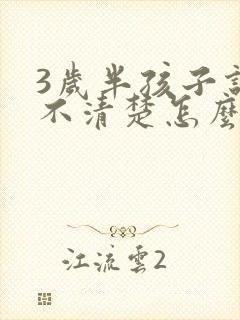 3歲半孩子
不清楚怎麼
江流雲2